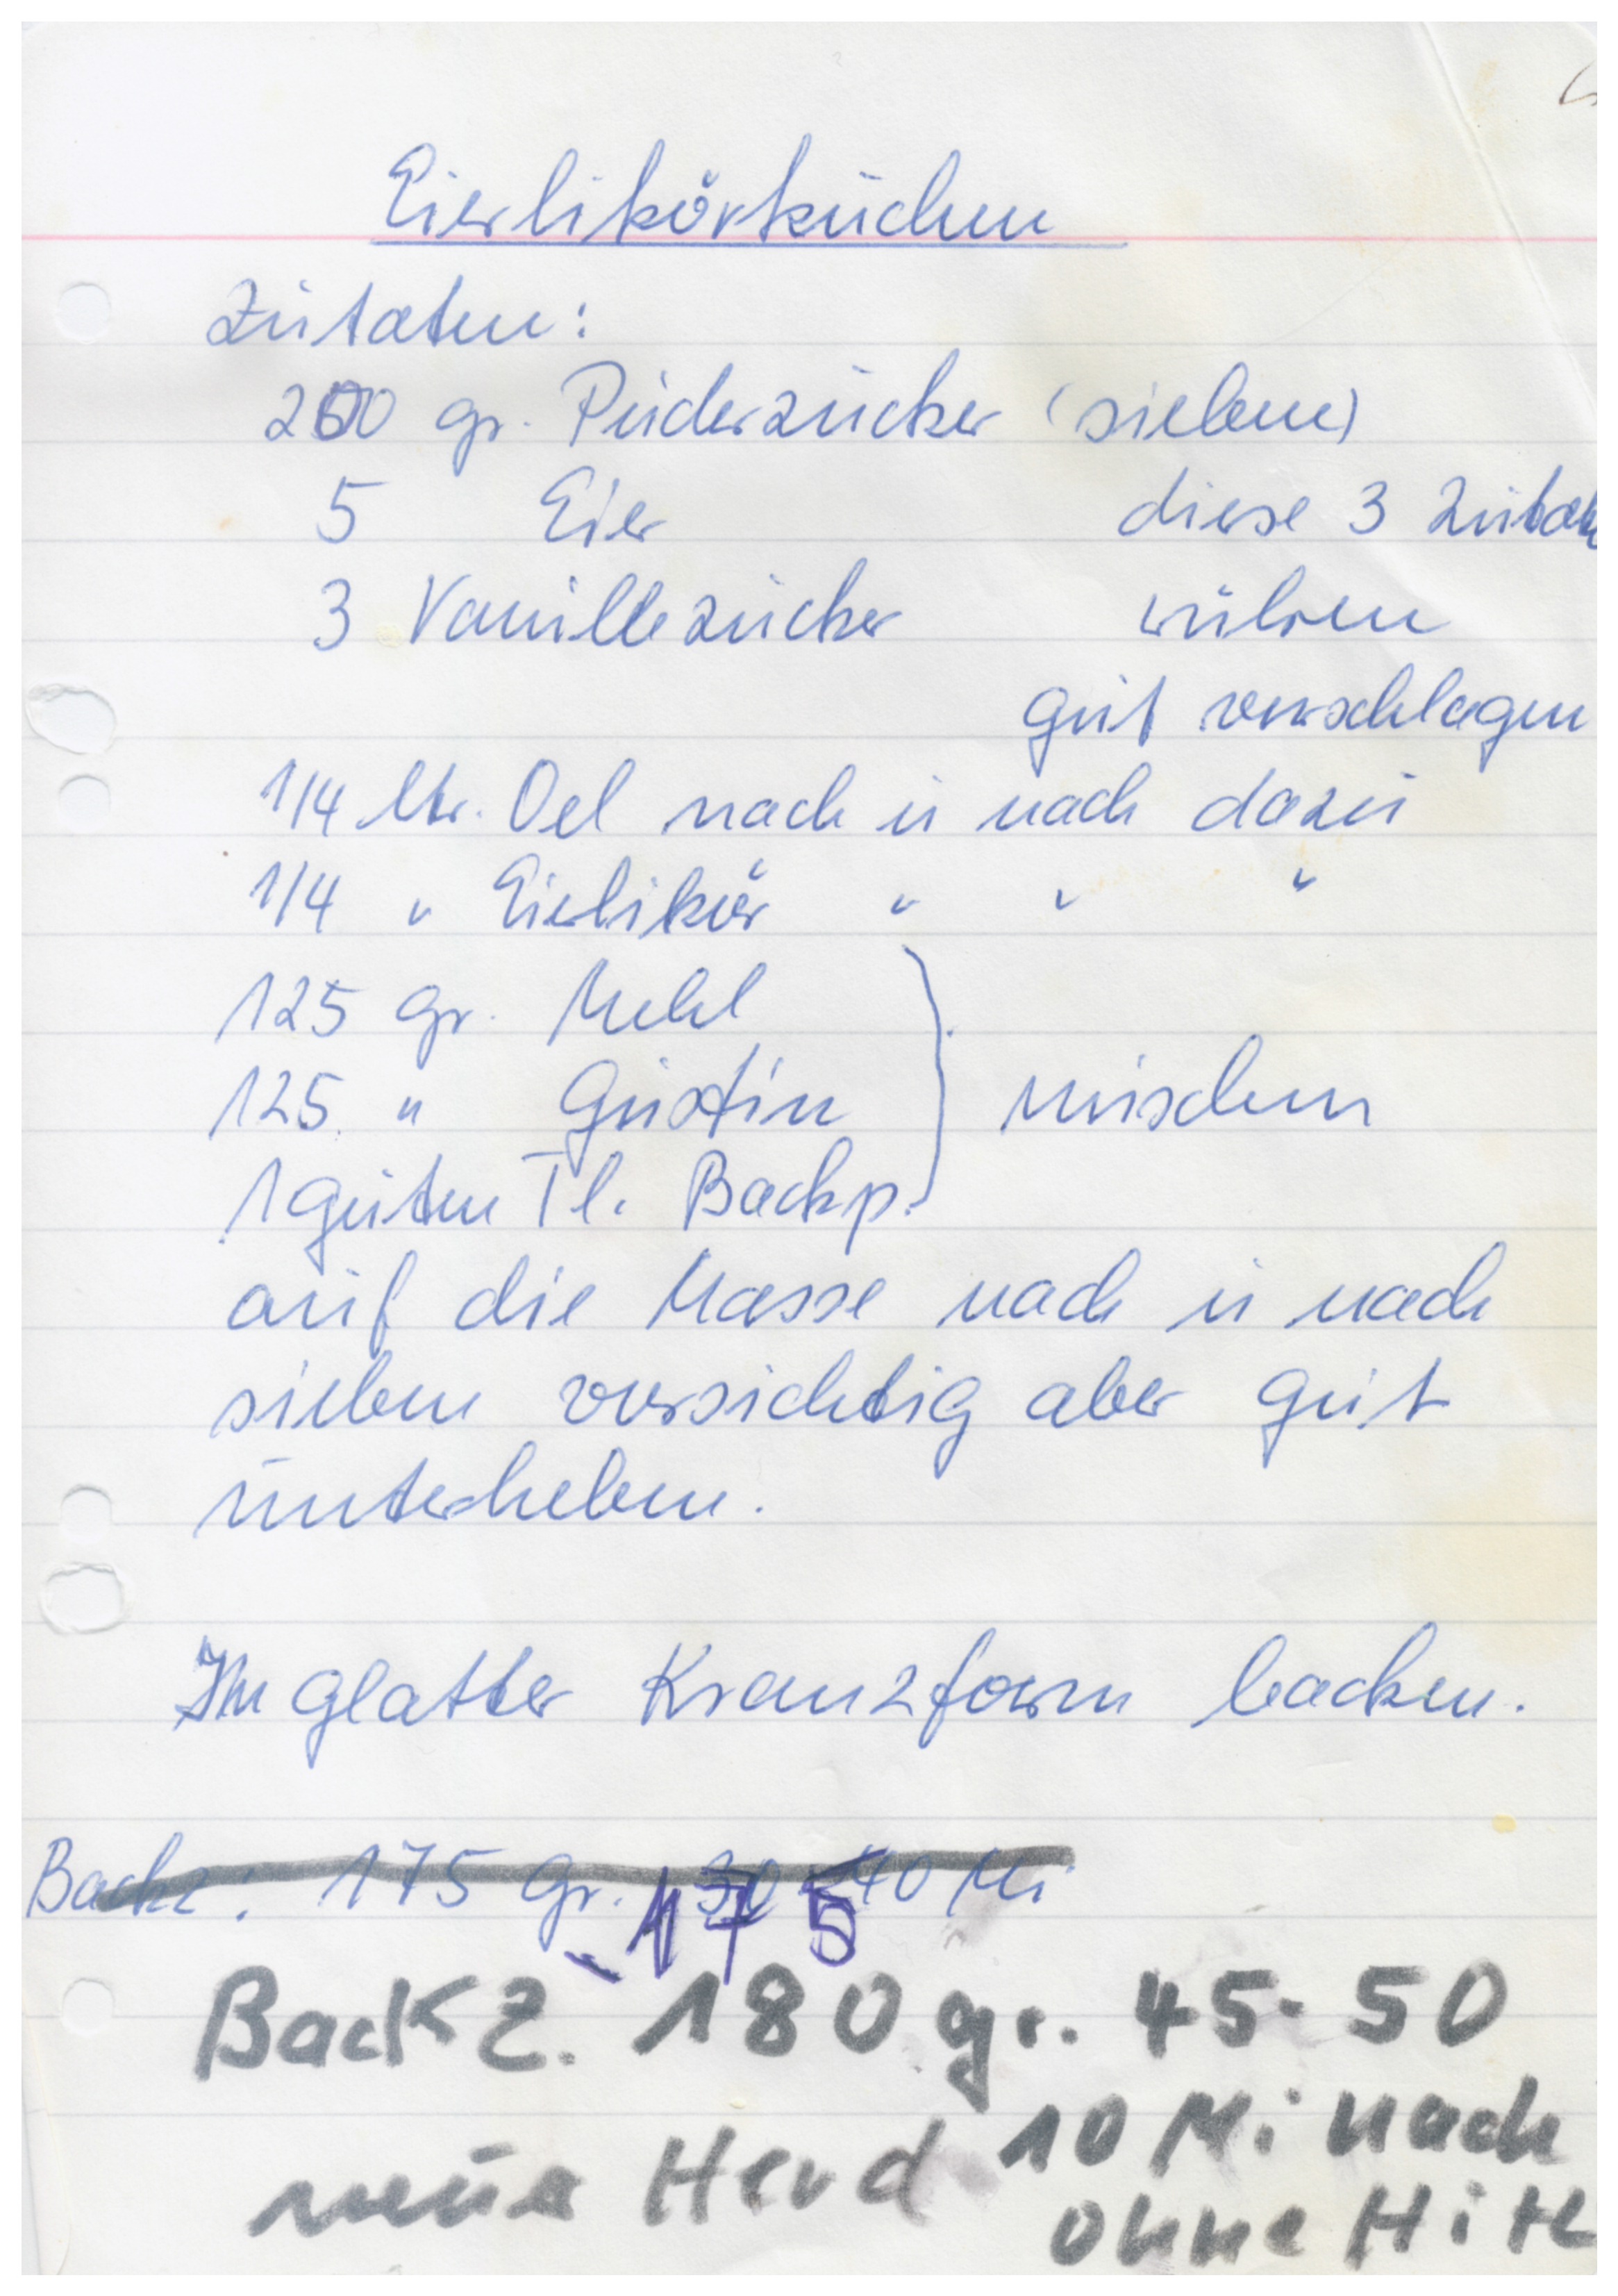 Eierlikörkuchen
Zutaten:
200 gr. Puderzucker (sieben)
5 Eier diese 3 Zutaten
3 Vanillezucker rühren
gut verschlagen
1/4 ltr. Oel nach u nach dazu
1/4 " Eierlikör " " "
125 gr. Mehl
125 " Gustin } mischen
1 guten Tl. Backp.
auf die Masse nach u nach
sieben vorsichtig aber gut
unterheben.
In glatter Kranzform backen.
Backz: 175 gr. 30-40 Mi
-175
Backz. 180 gr. 45-50
10 Mi nach
neuer Herd
ohne Hitze